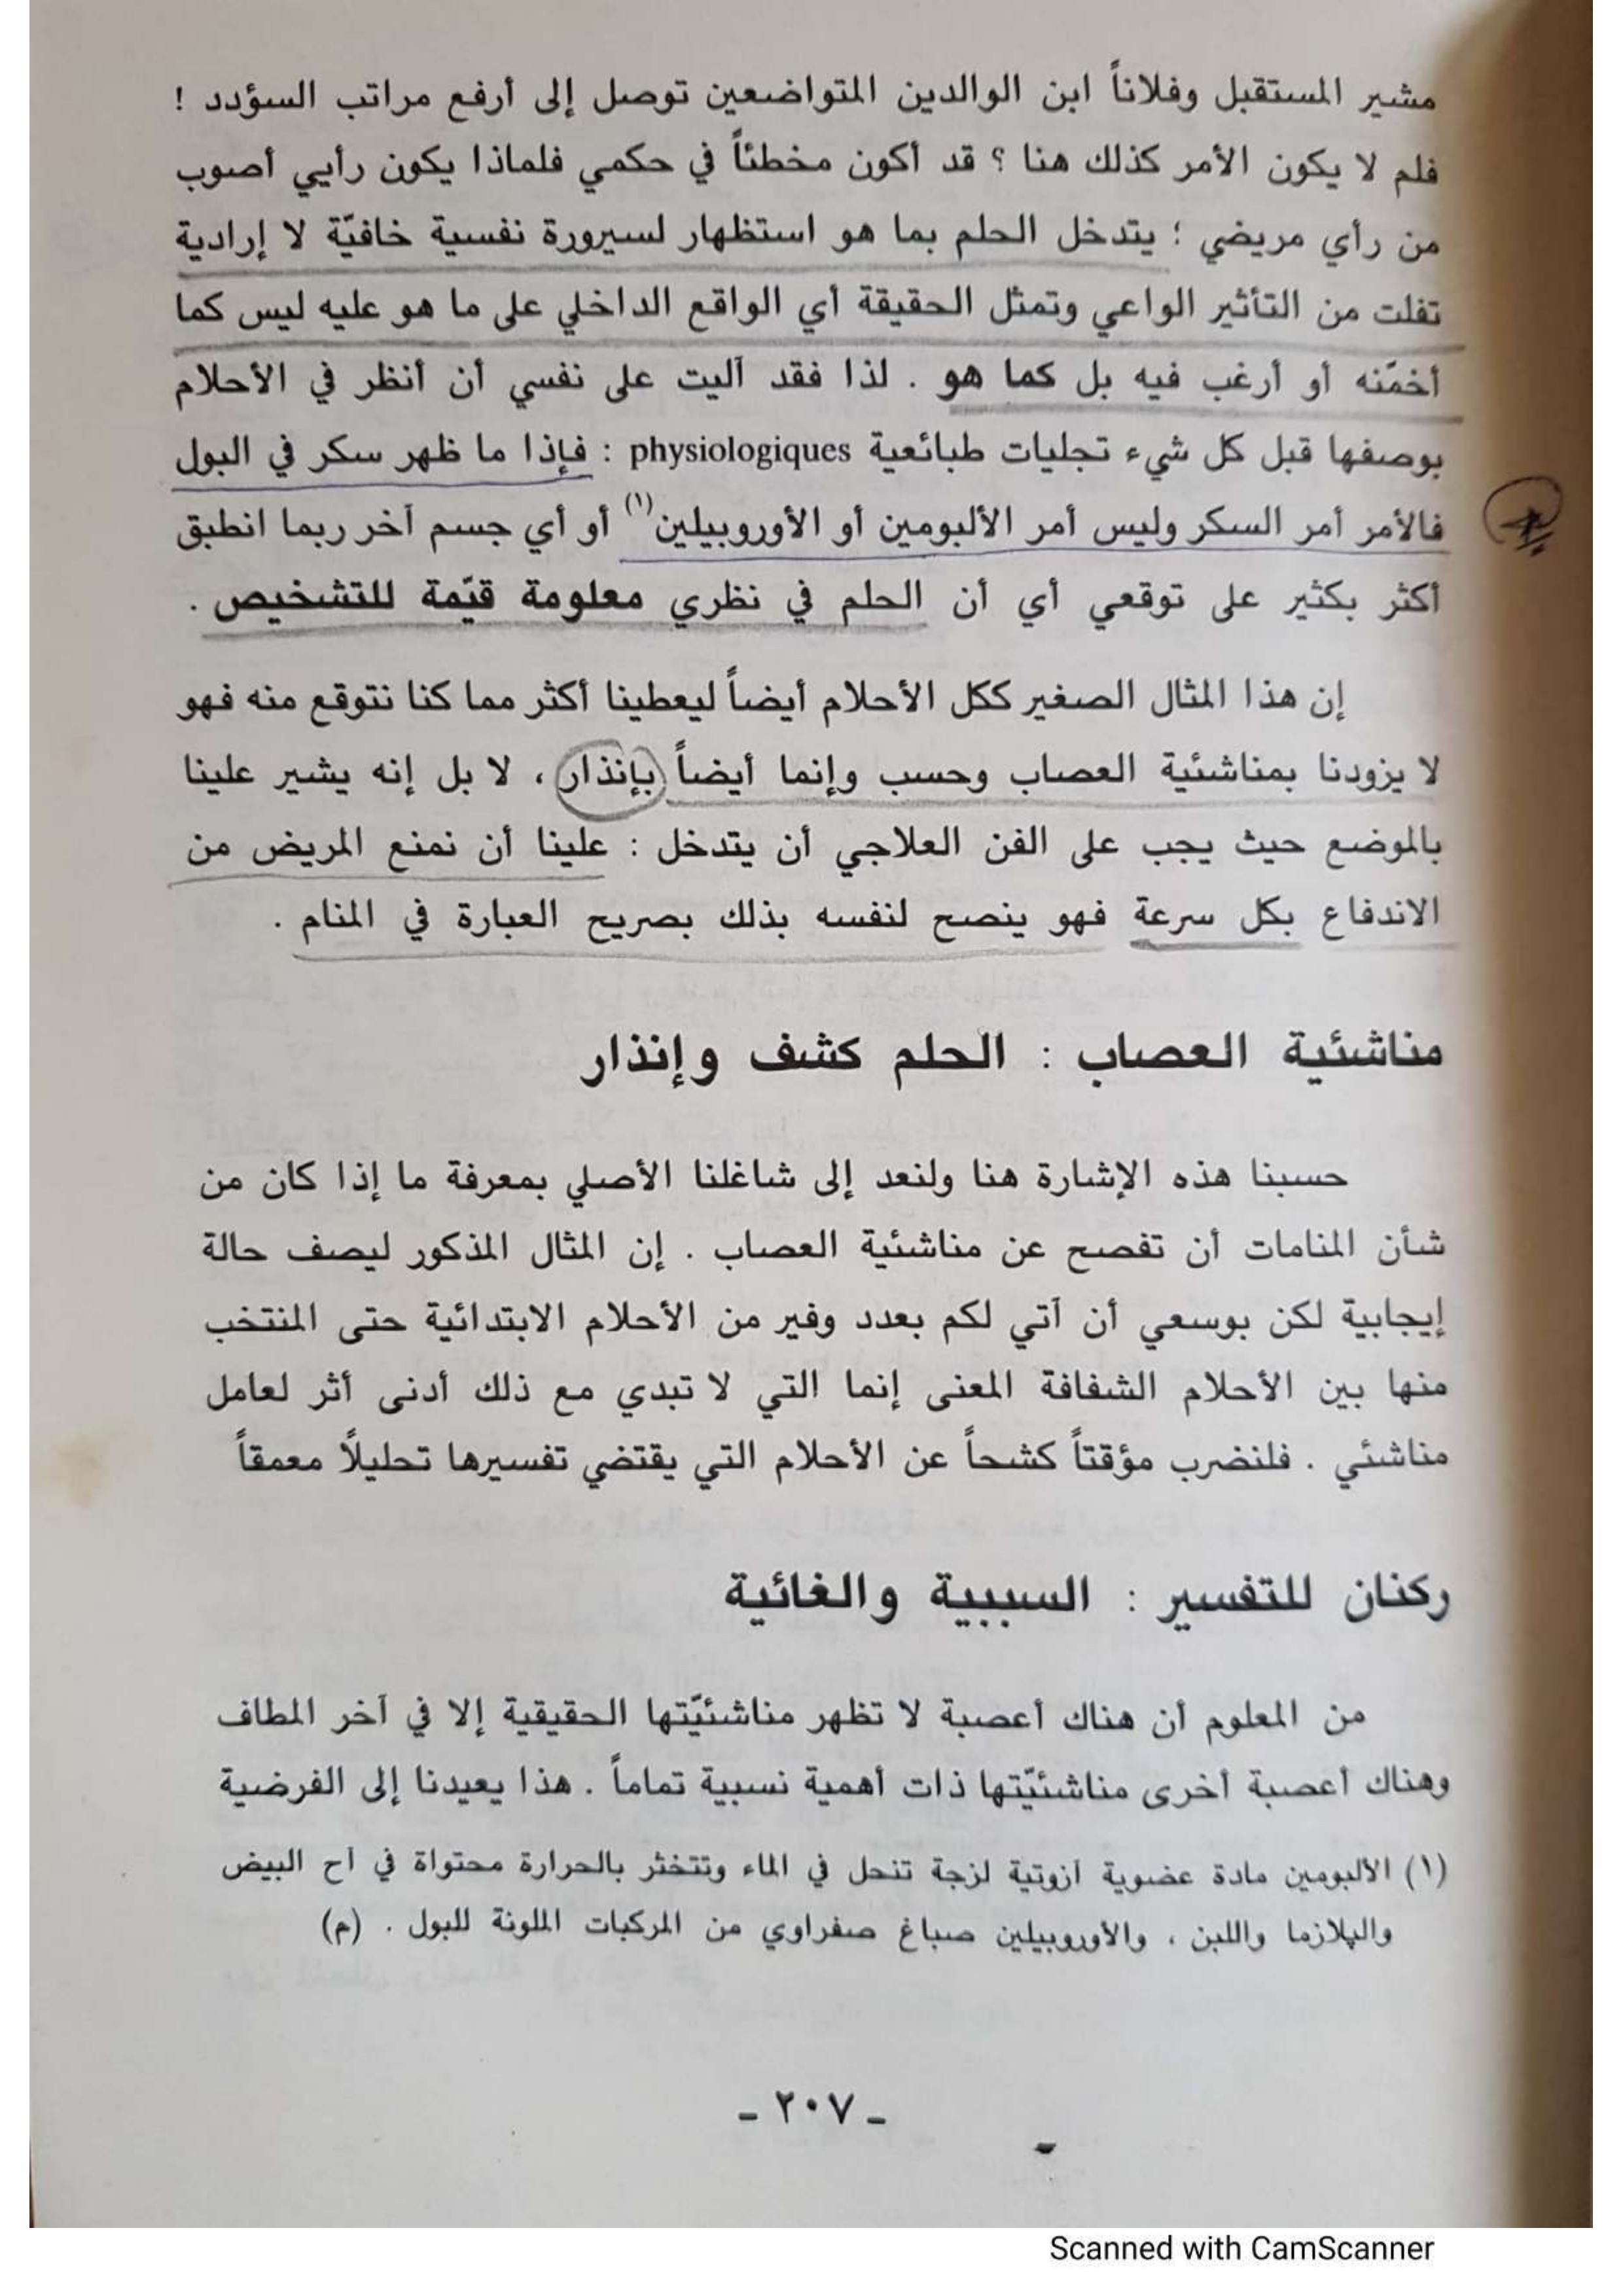 مشير المستقبل وفلاناً ابن الوالدين المتواضعين توصل إلى أرفع مراتب السؤدد !
فلم لا يكون الأمر كذلك هنا ؟ قد أكون مخطئاً في حكمي فلماذا يكون رأيي أصوب
من رأي مريضي ؛ يتدخل الحلم بما هو استظهار لسيرورة نفسية خافيّة لا إرادية
تفلت من التأثير الواعي وتمثل الحقيقة أي الواقع الداخلي على ما هو عليه ليس كما
أخمّنه أو أرغب فيه بل كما هو . لذا فقد آليت على نفسي أن أنظر في الأحلام
بوصفها قبل كل شيء تجليات طبائعية physiologiques : فإذا ما ظهر سكر في البول
فالأمر أمر السكر وليس أمر الألبومين أو الأوروبيلين(١) أو أي جسم آخر ربما انطبق
أكثر بكثير على توقعي أي أن الحلم في نظري معلومة قيّمة للتشخيص .
إن هذا المثال الصغير ككل الأحلام أيضاً ليعطينا أكثر مما كنا نتوقع منه فهو
لا يزودنا بمناشئية العصاب وحسب وإنما أيضاً بإنذار ، لا بل إنه يشير علينا
بالموضع حيث يجب على الفن العلاجي أن يتدخل : علينا أن نمنع المريض من
الاندفاع بكل سرعة فهو ينصح لنفسه بذلك بصريح العبارة في المنام .
مناشئية العصاب : الحلم كشف وإنذار
حسبنا هذه الإشارة هنا ولنعد إلى شاغلنا الأصلي بمعرفة ما إذا كان من
شأن المنامات أن تفصح عن مناشئية العصاب . إن المثال المذكور ليصف حالة
إيجابية لكن بوسعي أن آتي لكم بعدد وفير من الأحلام الابتدائية حتى المنتخب
منها بين الأحلام الشفافة المعنى إنما التي لا تبدي مع ذلك أدنى أثر لعامل
مناشئي . فلنضرب مؤقتاً كشحاً عن الأحلام التي يقتضي تفسيرها تحليلاً معمقاً
ركنان للتفسير : السببية والغائية
من المعلوم أن هناك أعصبة لا تظهر مناشئيّتها الحقيقية إلا في آخر المطاف
وهناك أعصبة أخرى مناشئيّتها ذات أهمية نسبية تماماً . هذا يعيدنا إلى الفرضية
(١) الألبومين مادة عضوية آزوتية لزجة تنحل في الماء وتتخثر بالحرارة محتواة في آح البيض
والپلازما واللبن ، والأوروبيلين صباغ صفراوي من المركبات الملونة للبول . (م)
- ٢٠٧ -
Scanned with CamScanner